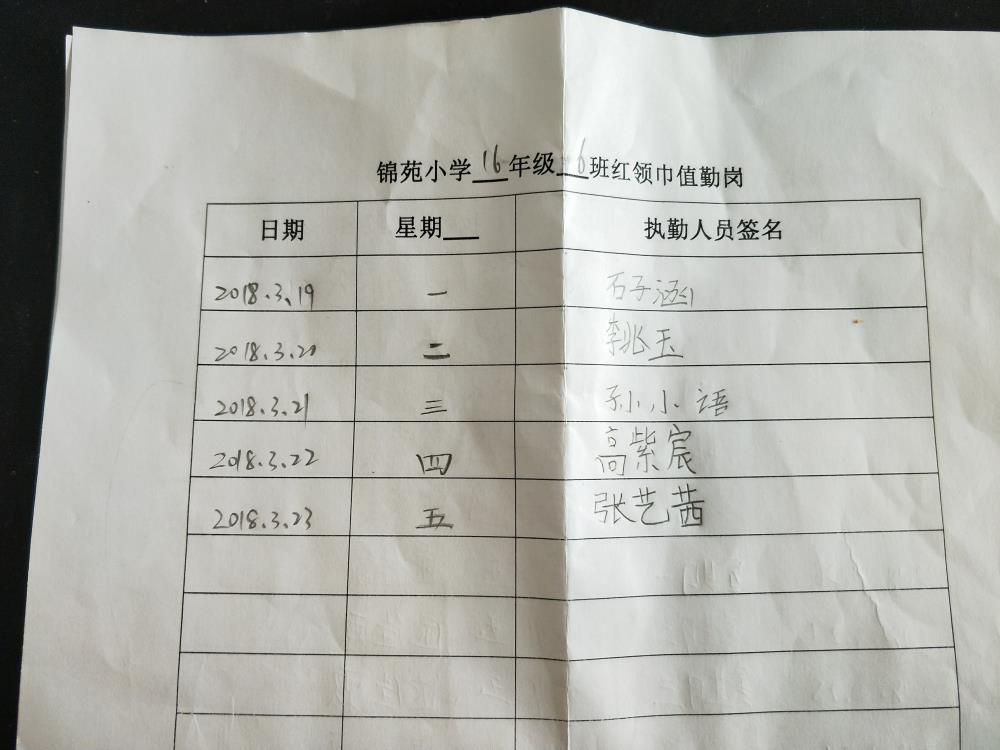 锦苑小学16年级6班红领巾值勤岗
日期 星期 执勤人员签名
2018.3.19 一 石子涵
2018.3.20 二 李兆玉
2018.3.21 三 孙小语
2018.3.22 四 高紫宸
2018.3.23 五 张艺茜